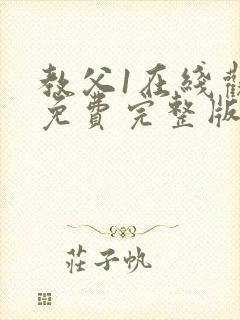 教父1在綫觀
免費完整版
莊子帆